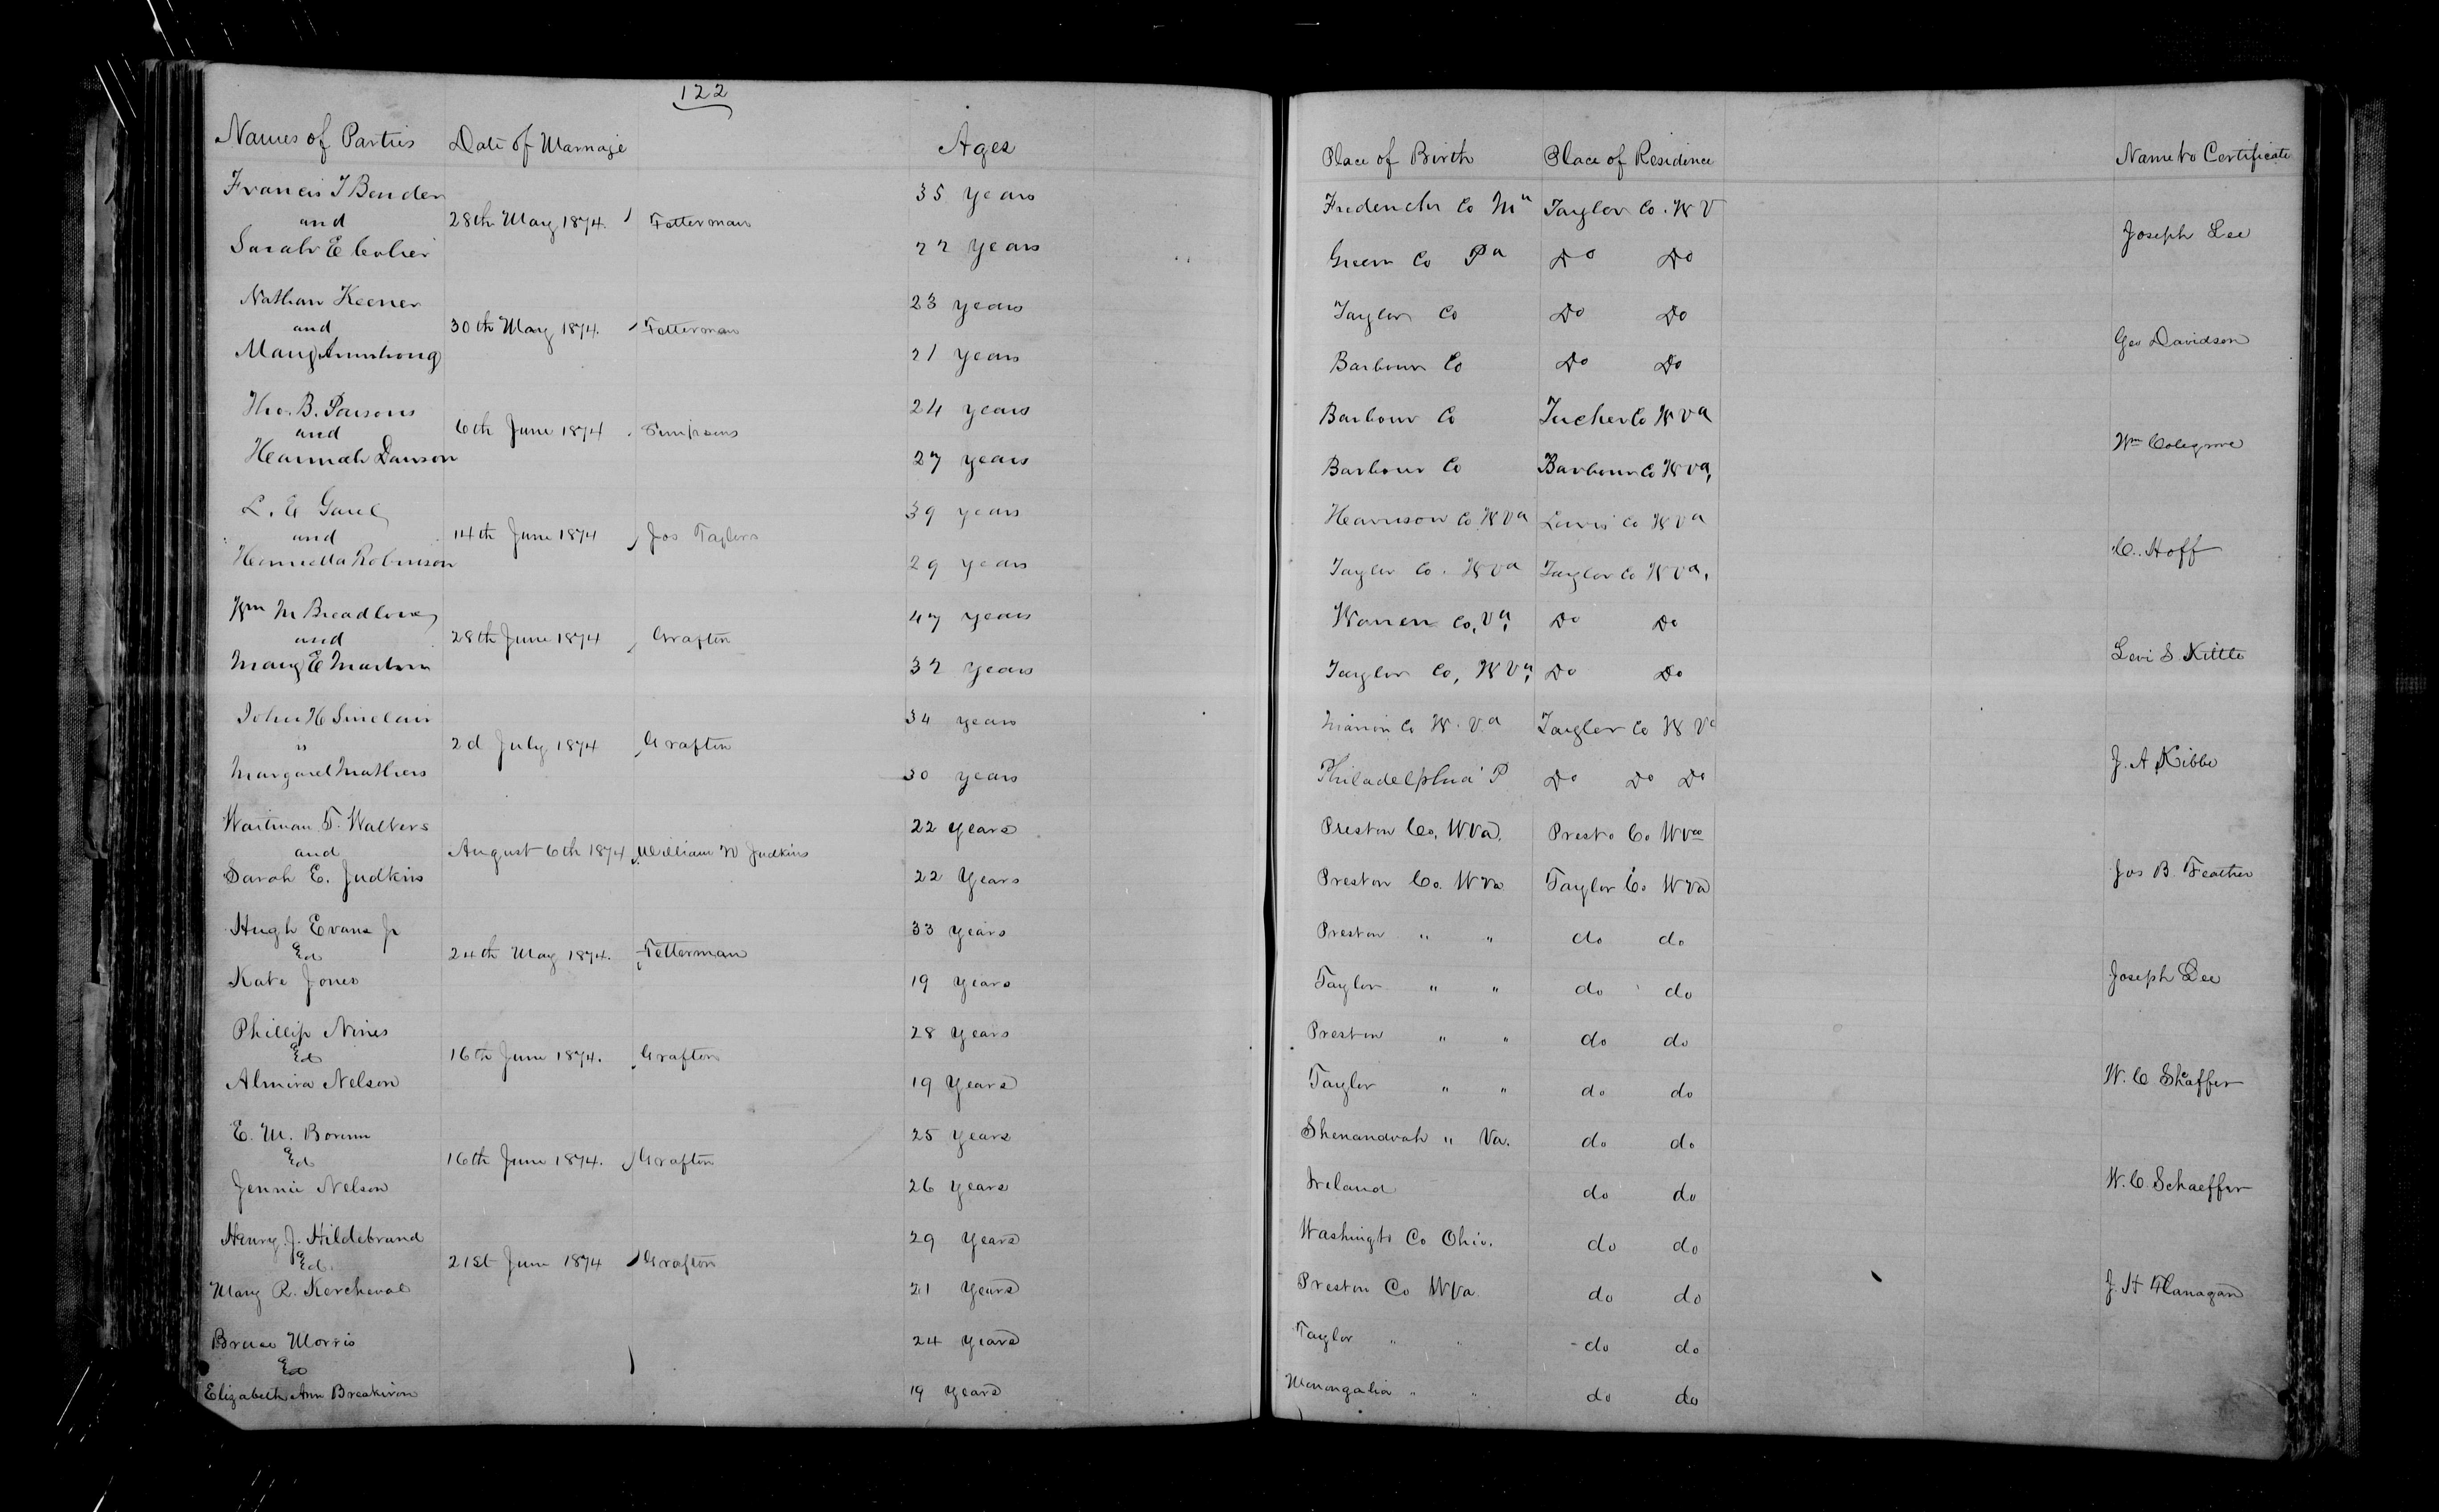 122
Names of Parties Date of Marriage Ages Place of Birth Place of Residence Name to Certificate
Francis T Bender 35 years Frederick Co Md Taylor Co. W V
and 28th May 1874. Fetterman Joseph Lee
Sarah E 22 years Green Co Pa Do Do
Nathan Keener 23 years Taylor Co Do Do
and 30th May 1874. Fetterman Geo Davidson
Mary Armstrong 21 years Barbour Co Do Do
Tho. B. Parsons 24 years Barbour Co Tucker Co W Va
and 6th June 1874 Simpsons Wm Colegrove
Hannah Dawson 27 years Barbour Co Barbour Co W Va,
L. E 39 years Harrison Co W Va Lewis Co W Va
and 14th June 1874 Jos Taylors C. Hoff
Henrietta Robinson 29 years Taylor Co. W Va Taylor Co W Va,
Wm M Breadlove 47 years Warren Co, Va, Do Do
and 28th June 1874 Grafton Levi S Kittle
Mary E Martin 32 years Taylor Co, W Va, Do Do
John H Sinclair 34 years Marion Co W. Va Taylor Co W Va
" 2d July 1874 Grafton J. A Kibbe
Margaret Mathers 30 years Philadelphia P Do Do Do
Waitman T. Walters 22 Years Preston Co, W Va. Presto Co W Va
and August 6th 1874 William W Judkins Jos B. Feather
Sarah E. Judkins 22 Years Preston Co. W Va Taylor Co W Va
Hugh Evans Jr 33 Years Preston " " do do
& 24th May 1874. Fetterman Joseph Lee
Kate Jones 19 Years Taylor " " do do
Phillip Nines 28 Years Preston " " do do
& 16th June 1874. Grafton W. C Shaffer
Almira Nelson 19 Years Taylor " " do do
E. M. 25 Years Shenandoah " Va. do do
& 16th June 1874. Grafton W. C. Schaeffer
Jennie Nelson 26 Years Ireland do do
Henry. J. Hildebrand 29 Years Washingto Co Ohio. do do
& 21st June 1874 Grafton J. H Flanagan
Mary R. Kercheval 21 Years Preston Co W Va. do do
Bruce Morris 24 Years Taylor " " do do
&
Elizabeth Ann Breakiron 19 Years Monongalia " " do do